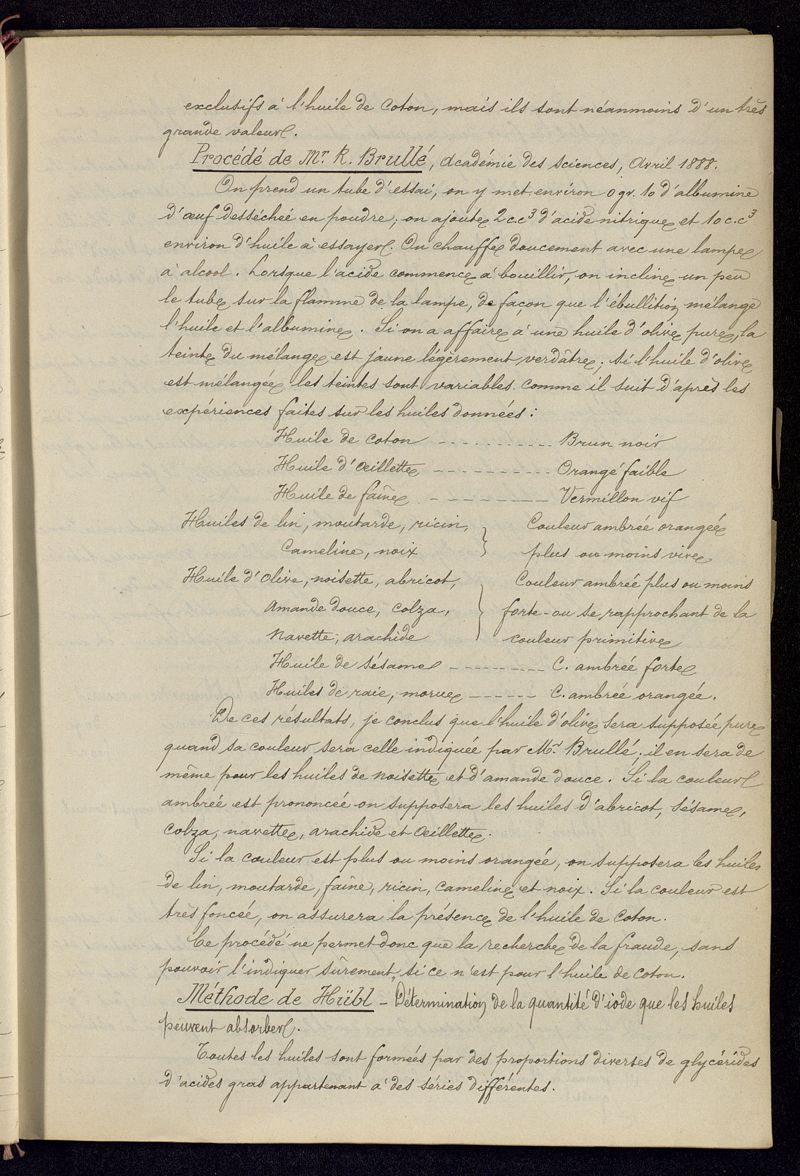 exclusifs à l'huile de coton, mais ils sont néanmoins d'un très
grande valeur.
Procédé de Mr R. Brullé, Académie des Sciences, Avril 1888.
On prend un tube d'essai, on y met environ 0 gr. 10 d'albumine
d'œuf desséchée en poudre; on ajoute 2 c.c³ d'acide nitrique et 10 c.c³
environ d'huile à essayer. On chauffe doucement avec une lampe
à alcool. Lorsque l'acide commence à bouillir, on incline un peu
le tube sur la flamme de la lampe, de façon que l'ébullition mélange
l'huile et l'albumine. Si on a affaire à une huile d'olive pure, la
teinte du mélange est jaune légèrement verdâtre; si l'huile d'olive
est mélangée les teintes sont variables comme il suit d'après les
expériences faites sur les huiles données:
Huile de coton - - - - - - - - - - Brun noir
Huile d'Œillette - - - - - - - - - - Orangé faible
Huile de faîne - - - - - - - - - - Vermillon vif
Huiles de lin, moutarde, ricin, } Couleur ambrée orangée
Cameline, noix plus ou moins vive
Huile d'Olive, noisette, abricot, Couleur ambrée plus ou moins
Amande douce, Colza, } forte - ou se rapprochant de la
Navette, arachide couleur primitive
Huile de sésame - - - - - - - - - C. ambrée forte
Huiles de raie, morue - - - - - - C. ambrée orangée.
De ces résultats, je conclus que l'huile d'olive sera supposée pure
quand sa couleur sera celle indiquée par Mr Brullé; il en sera de
même pour les huiles de noisette et d'amande douce. Si la couleur
ambrée est prononcée on supposera les huiles d'abricot, sésame,
colza, navette, arachide et Œillette.
Si la couleur est plus ou moins orangée, on supposera les huiles
de lin, moutarde, faîne, ricin, cameline et noix. Si la couleur est
très foncée, on assurera la présence de l'huile de coton.
Ce procédé ne permet donc que la recherche de la fraude, sans
pouvoir l'indiquer sûrement, si ce n'est pour l'huile de coton.
Méthode de Hübl - Détermination de la quantité d'iode que les huiles
peuvent absorber.
Toutes les huiles sont formées par des proportions diverses de glycérides
d'acides gras appartenant à des séries différentes.